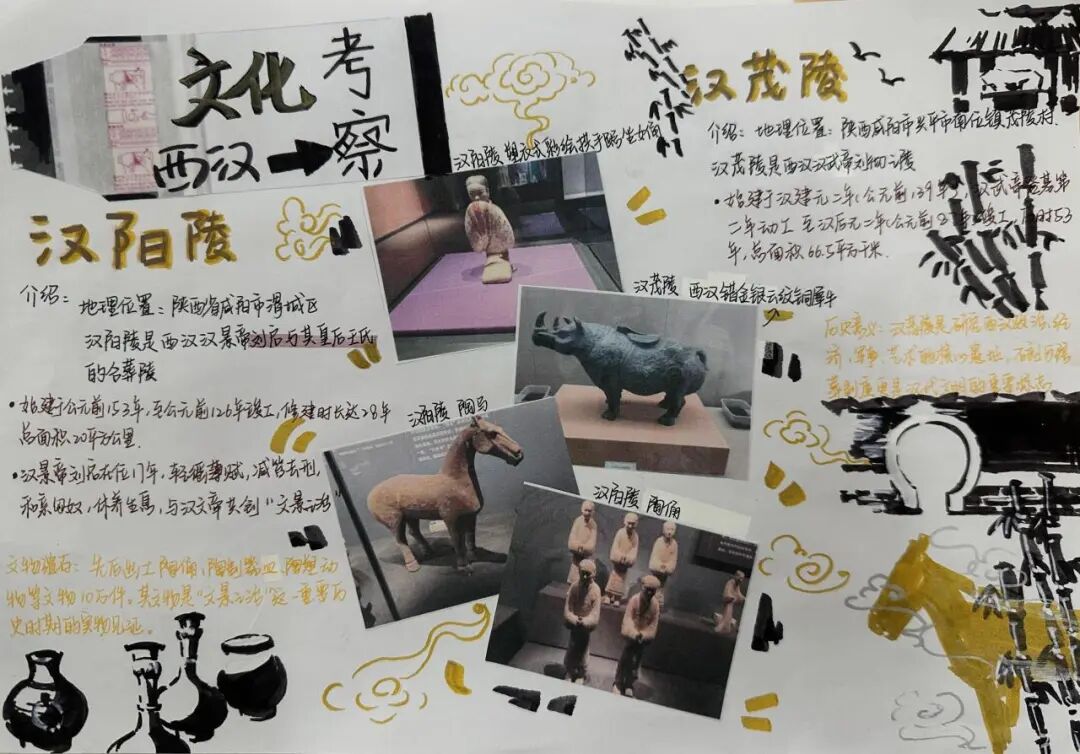 文化考察
西汉
汉阳陵
介绍：地理位置：陕西省咸阳市渭城区
汉阳陵是西汉汉景帝刘启与其皇后王氏
的合葬陵
• 始建于公元前153年，至公元前126年竣工，修建时长达28年
总面积20平方公里
• 汉景帝刘启在位17年，轻徭薄赋，减笞去刑，
和亲匈奴，休养生息，与汉文帝共创“文景之治”
文物遗存：先后出土陶俑、陶制器皿、陶塑动
物等文物10万件。其文物是“文景之治”这一重要历
史时期的实物见证。
汉阳陵 塑衣式彩绘拱手跽坐女俑
汉茂陵 西汉错金银云纹铜犀牛
汉阳陵 陶马
汉阳陵 陶俑
汉茂陵
介绍：地理位置：陕西咸阳市兴平市南位镇茂陵村.
汉茂陵是西汉汉武帝刘彻之陵
• 始建于汉建元二年（公元前139年），汉武帝登基第
二年动工 至汉后元二年（公元前87年）竣工，历时53
年，总面积66.5平方千米.
历史意义：汉茂陵是研究西汉政治、经
济、军事、艺术的核心基地，